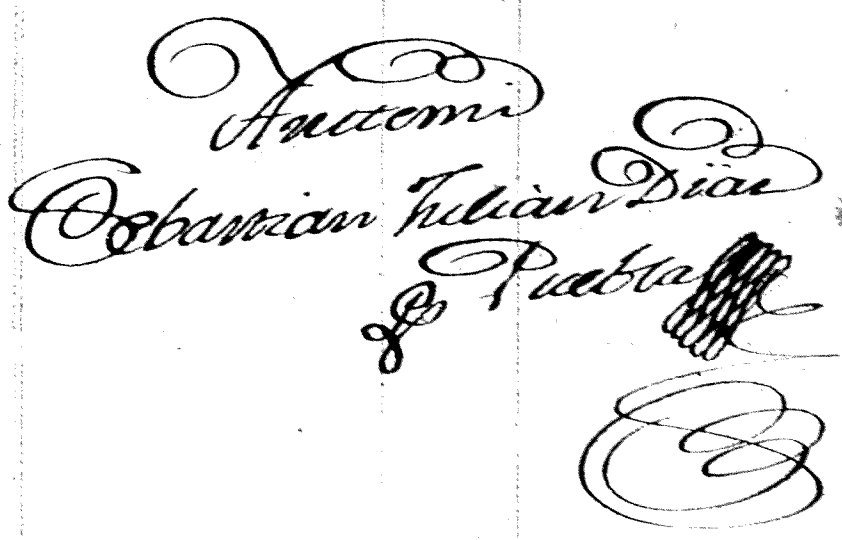 Antemi
Sebastian Julian Diaz
Puebla